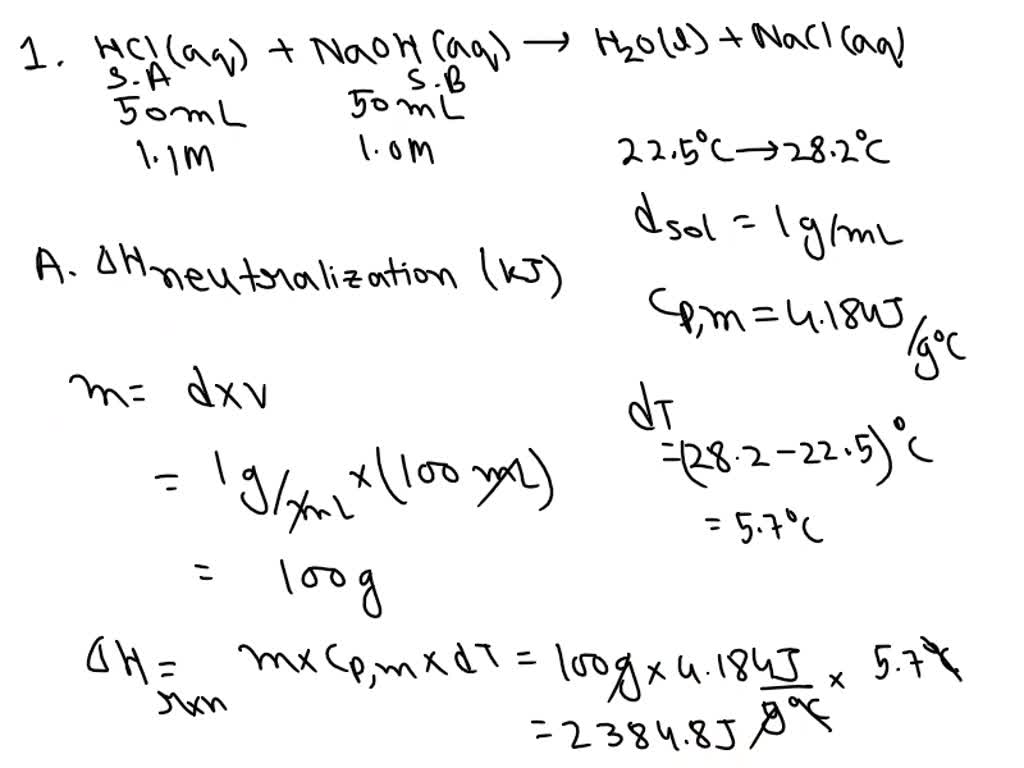 1. HCl(aq) + NaOH(aq) → H₂O(l) + NaCl(aq)
S.A S.B
50mL 50mL
1.1M 1.0M
22.5°C → 28.2°C
dsol = 1g/mL
Cp,m = 4.184J/g°C
A. ΔHneutralization (kJ)
m = d×v
= 1g/mL × (100mL)
= 100g
dT
= (28.2 - 22.5)°C
= 5.7°C
ΔHrxn = m × Cp,m × dT = 100g × 4.184J/g°C × 5.7°C
= 2384.8J